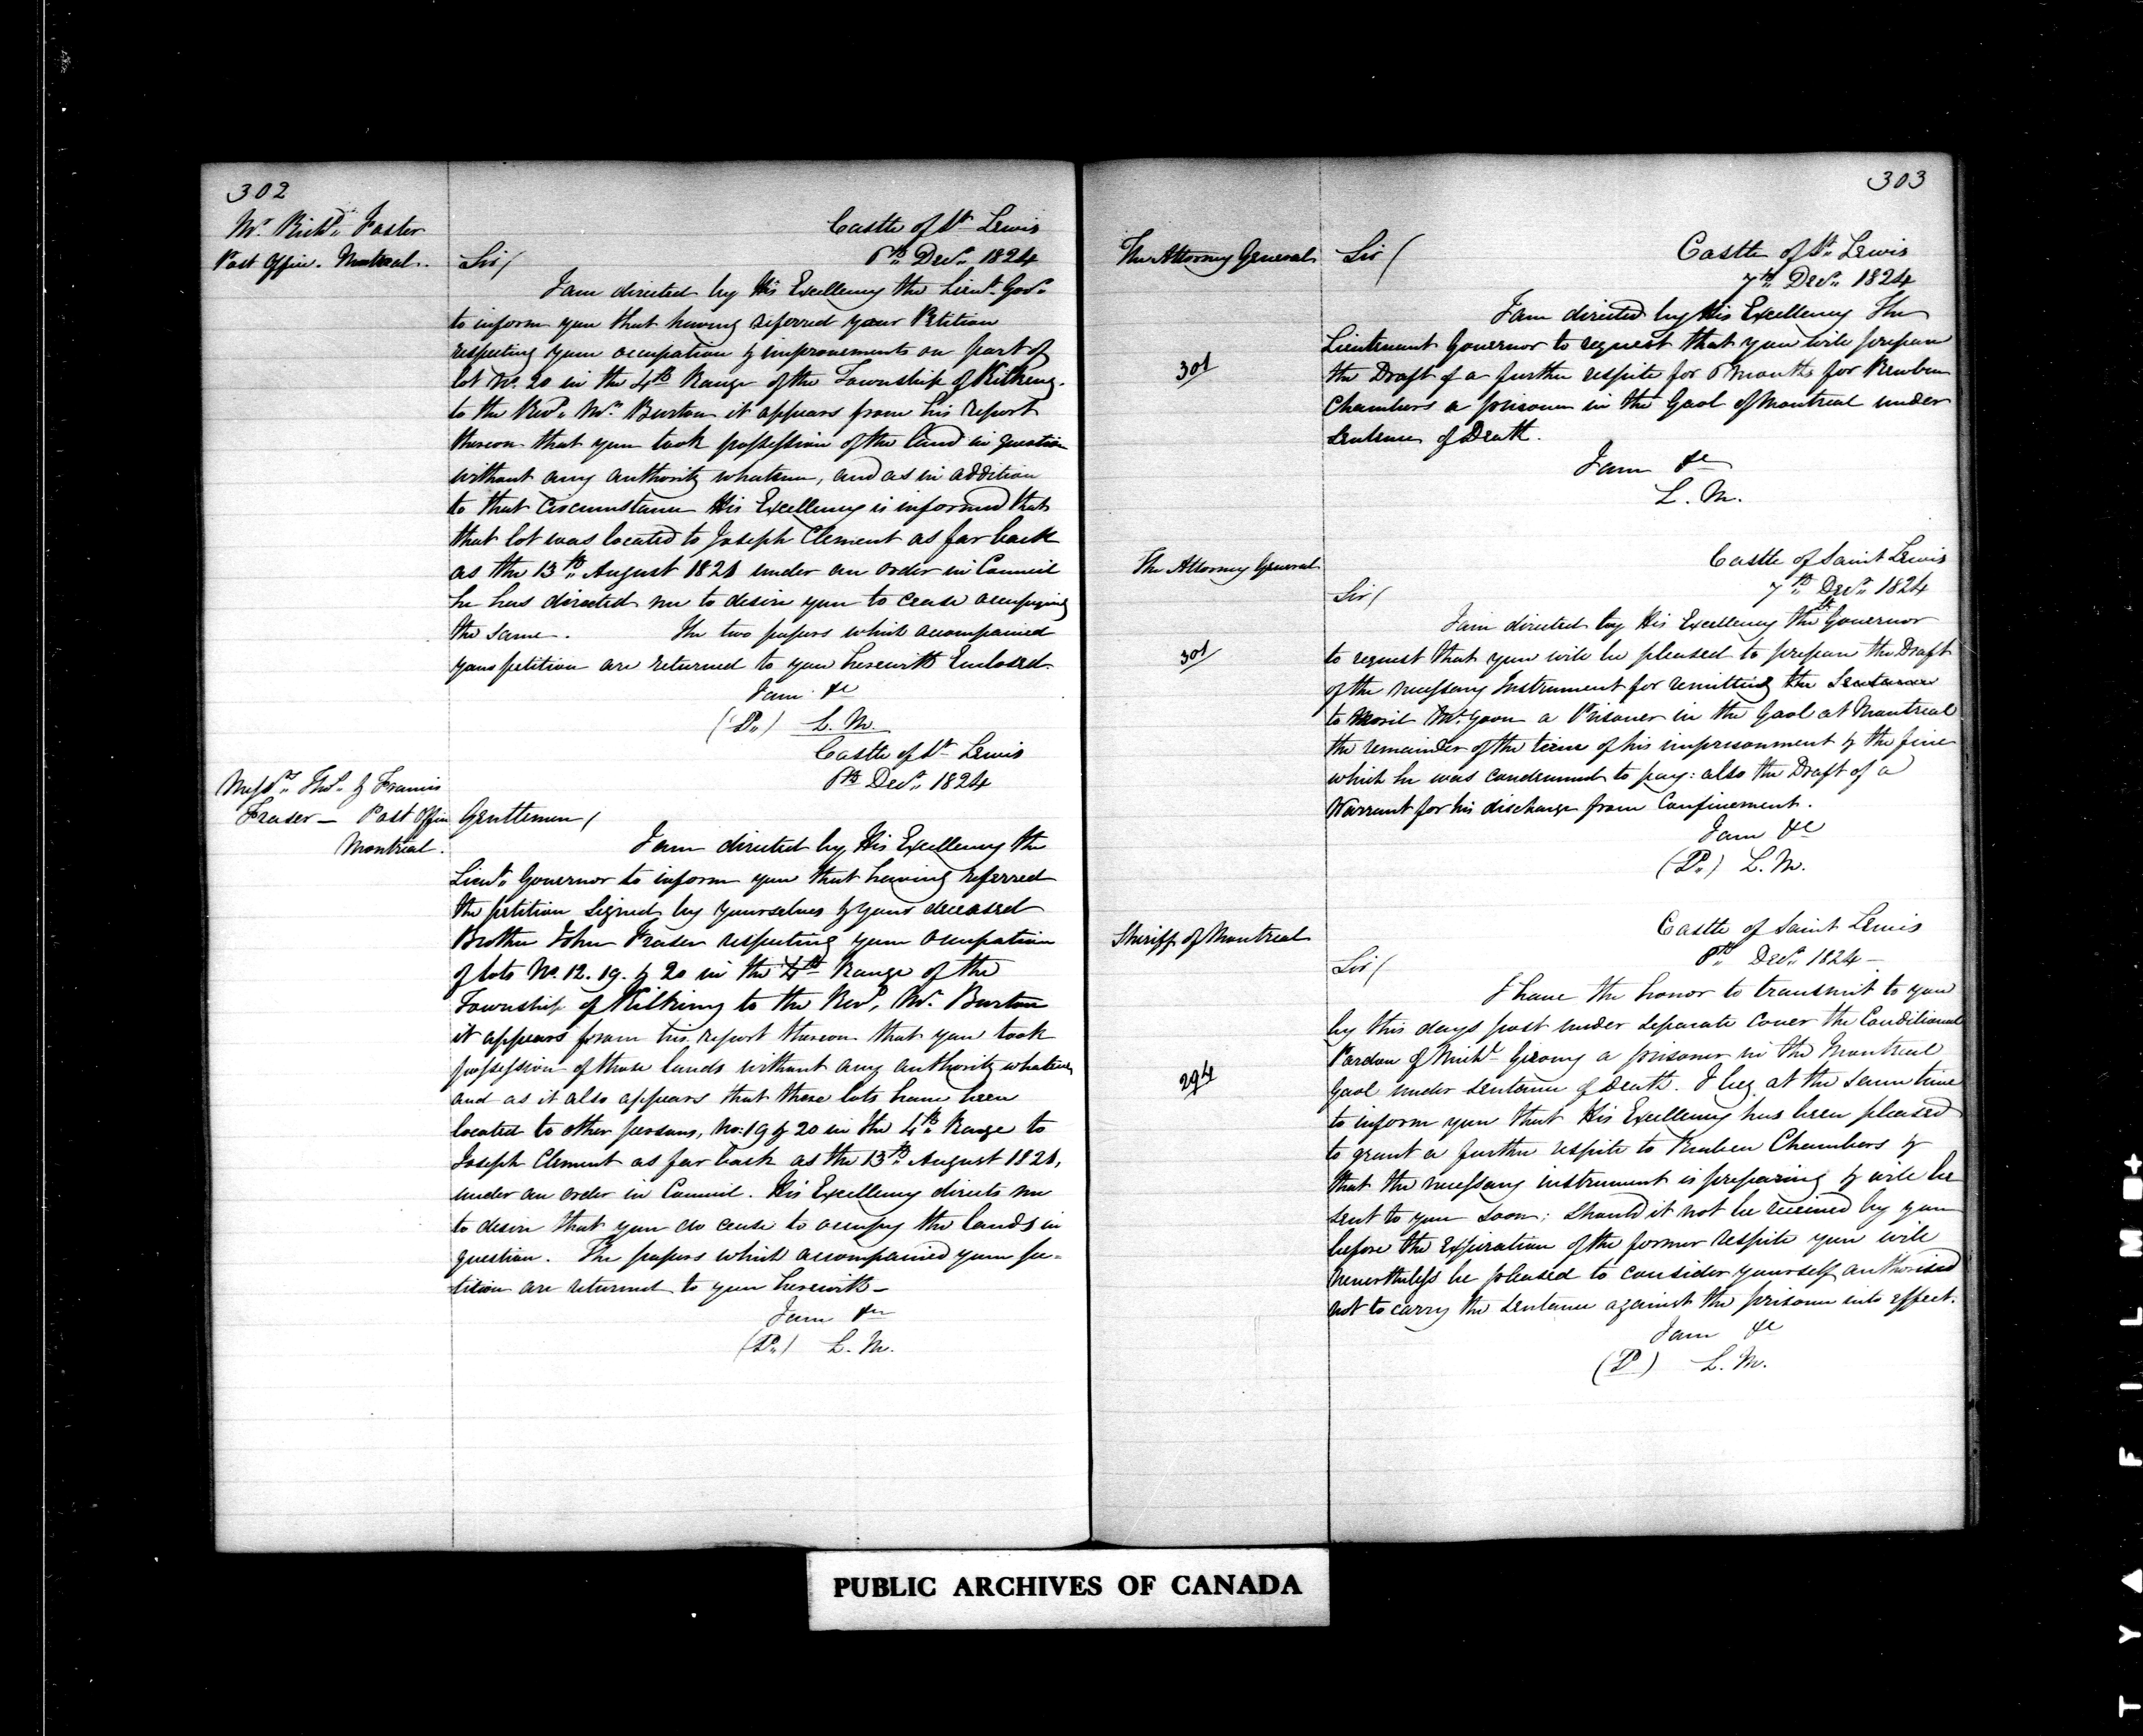 302
Mr. Richd. Foster
Post Office. Montreal.
Castle of St Lewis
6th Decr. 1824
Sir/
I am directed by His Excellency the Lieut. Govr.
to inform you that having referred your Petition
respecting your occupation & improvements on part of
lot No. 20 in the 4th Range of the Township of Kilkeny.
to the Revd. Mr. Burton it appears from his report
thereon that you took possession of the land in question
without any authority whatever, and as in addition
to that circumstance His Excellency is informed that
that lot was located to Joseph Clement as far back
as the 13th August 1821 under an order in Council
he has directed me to desire you to cease occupying
the same. The two papers which accompanied
your petition are returned to you herewith Enclosed.
I am &c
(D.) L. M.
Castle of St Lewis
6th Decr. 1824
Messrs. Thos. & Francis
Fraser — Post Office
Montreal.
Gentlemen/
I am directed by His Excellency the
Lieut. Governor to inform you that having referred
the petition signed by yourselves & your deceased
Brother John Fraser respecting your occupation
of lots No. 12. 19. & 20 in the 4th Range of the
Township of Kilkeny to the Revd. Mr. Burton
it appears from his report thereon that you took
possession of those lands without any authority whatever
and as it also appears that these lots have been
located to other persons, No. 19 & 20 in the 4th Range to
Joseph Clement as far back as the 13th August 1821,
under an order in Council. His Excellency directs me
to desire that you do cease to occupy the lands in
question. The papers which accompanied your pe=
tition are returned to you herewith —
I am &c
(D.) L. M.
303
The Attorney General
Sir/
Castle of St. Lewis
7th Decr. 1824
I am directed by His Excellency The
Lieutenant Governor to request that you will prepare
301
the Draft of a further respite for 6 months for Reuben
Chambers a prisoner in the Gaol of Montreal under
Sentence of Death.
I am &c
L. M.
Castle of Saint Lewis
7th Decr. 1824
The Attorney General
Sir/
I am directed by His Excellency the Lt Governor
301
to request that you will be pleased to prepare the Draft
of the necessary Instrument for remitting the Sentence
to a Prisoner in the Gaol at Montreal
the remainder of the term of his imprisonment & the fine
which he was condemned to pay: also the Draft of a
Warrant for his discharge from Confinement.
I am &c
(D.) L. M.
Castle of Saint Lewis
Decr. 1824 —
Sheriff of Montreal
Sir/
I have the honor to transmit to you
by this days post under separate cover the Conditional
294
Pardon of Michl. a prisoner in the Montreal
Gaol under sentence of Death. I beg at the same time
to inform you that His Excellency has been pleased
to grant a further respite to Reuben Chambers &
that the necessary instrument is preparing & will be
sent to you soon; should it not be received by you
before the Expiration of the former respite you will
nevertheless be pleased to consider yourself authorised
not to carry the sentence against the prisoner into effect.
I am &c
(D) L. M.
PUBLIC ARCHIVES OF CANADA